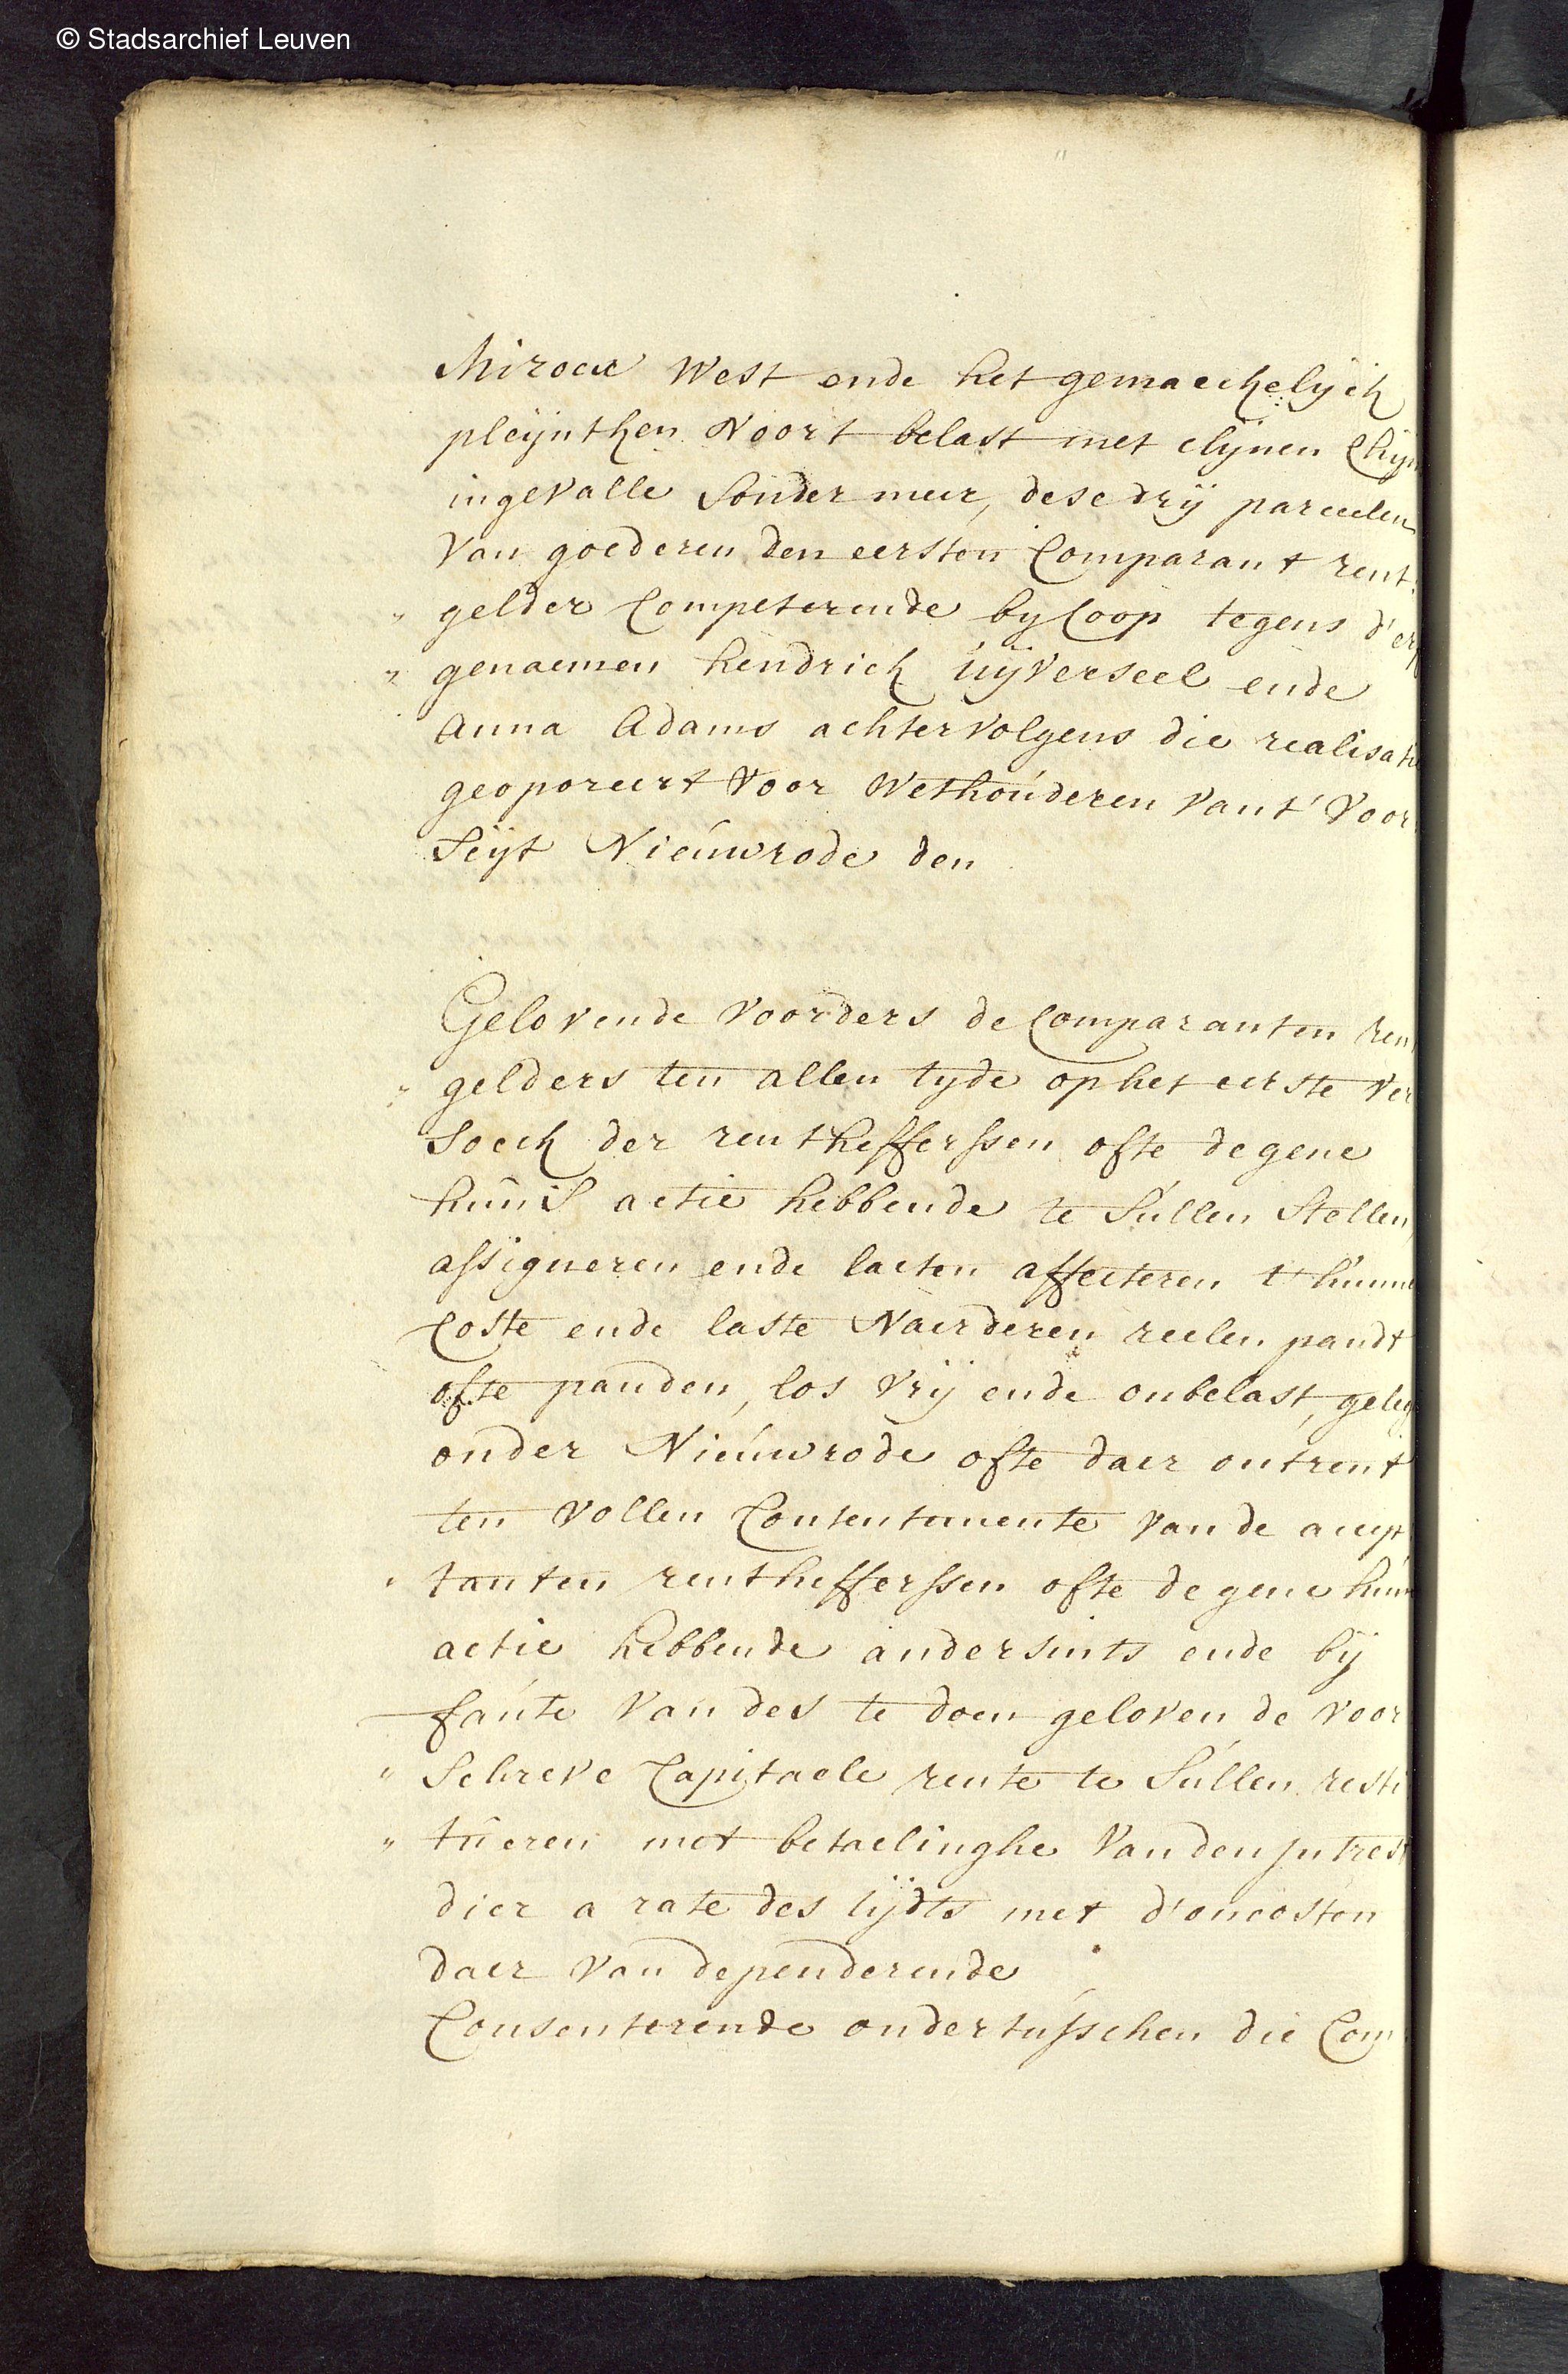 © Stadsarchief Leuven
Miroux West ende het gemaeckelyck
pleÿnthen Noort belast met clynen Chyn
ingevalle sonder meer, dese drÿ parceelen
Van goederen den eersten Comparant rent
" gelder Competerende by Coop tegens d'erf
" genaemen hendrick úÿtverseel ende
Anna Adams achtervolgens die realisatie
geopereert Voor Wethoúderen Vant' Voor
seÿt Nieúwrode den
Gelovende Voorders de Comparanten ren
" gelders ten allen tyde op het eerste Ver
soeck der renthefferssen ofte degene
húnS actie hebbende te súllen stellen
assigneren ende laeten affecteren t' húnne
Coste ende laste Naerderen reelen pandt
ofte panden, los Vrÿ ende onbelast, geleg
onder Nieúwrode ofte daer ontrent
ten Vollen Contentemente Van de accep
" tanten renthefferssen ofte degene hún
actie hebbende andersints ende bÿ
faúte Van des te doen geloven de Voor
" schreve Capitaele rente te súllen resti
" túeren met betaelinghe Van den Intrest
dier a rate des tÿdts met d'oncosten
daer Van dependerende
Consenterende ondertússchen die Com